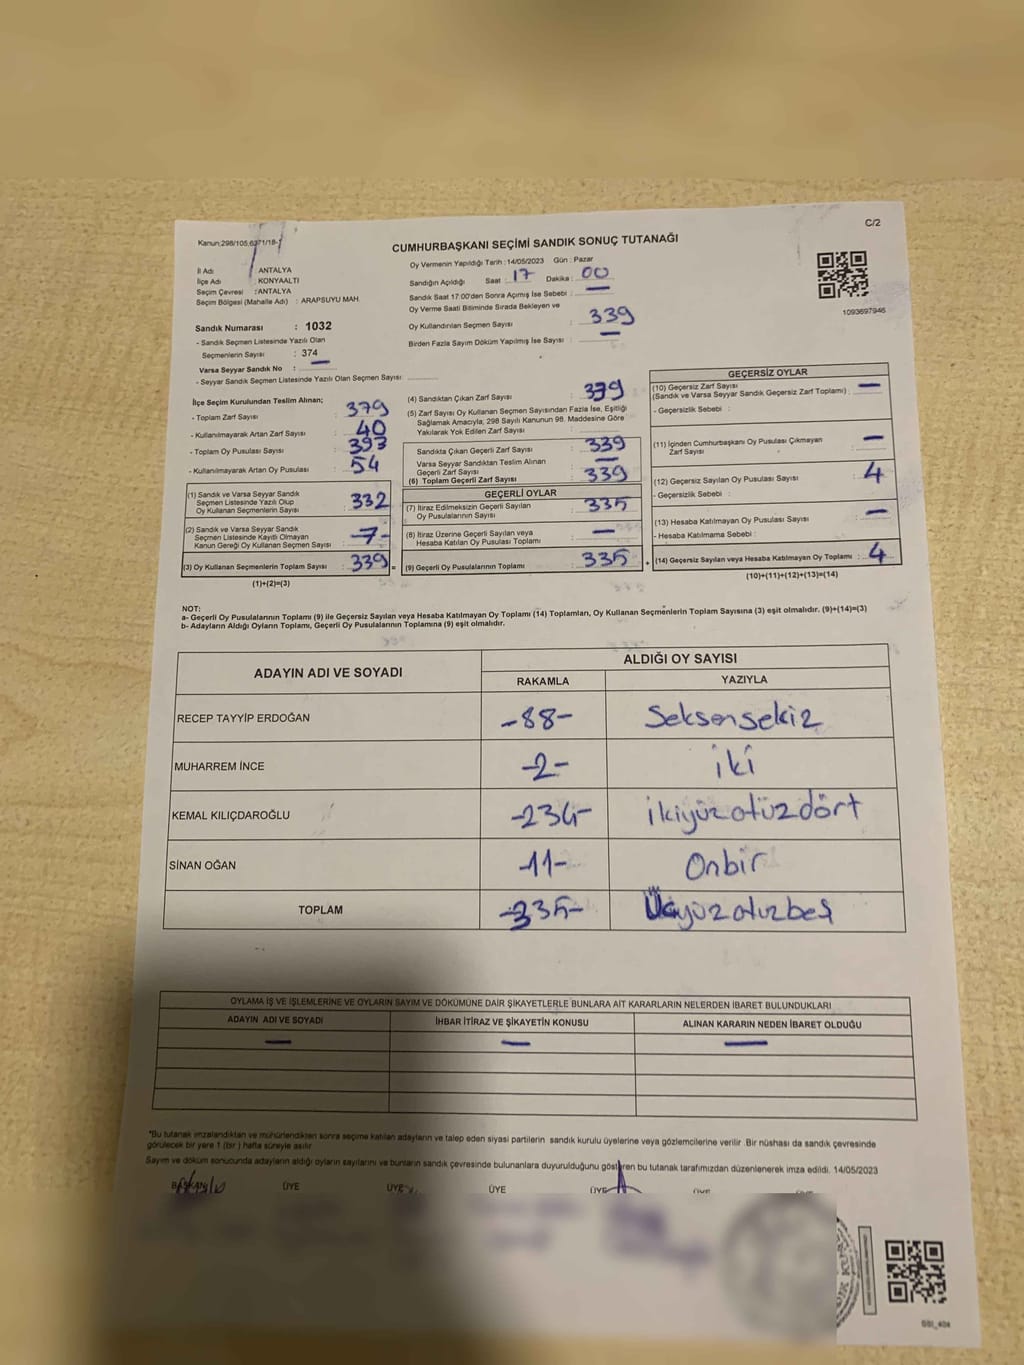 C/2
Kanun:298/105;6271/18-
CUMHURBAŞKANI SEÇİMİ SANDIK SONUÇ TUTANAĞI
İl Adı : ANTALYA
İlçe Adı : KONYAALTI
Seçim Çevresi : ANTALYA
Seçim Bölgesi (Mahalle Adı) : ARAPSUYU MAH.
Sandık Numarası : 1032
- Sandık Seçmen Listesinde Yazılı Olan
Seçmenlerin Sayısı : 374
Varsa Seyyar Sandık No : —
- Seyyar Sandık Seçmen Listesinde Yazılı Olan Seçmen Sayısı:
Oy Vermenin Yapıldığı Tarih :14/05/2023 Gün : Pazar
Sandığın Açıldığı Saat : 17 Dakika : 00
Sandık Saat 17:00'den Sonra Açılmış İse Sebebi : —
Oy Verme Saati Bitiminde Sırada Bekleyen ve
Oy Kullandırılan Seçmen Sayısı : 339
Birden Fazla Sayım Döküm Yapılmış İse Sayısı : —
1093697946
İlçe Seçim Kurulundan Teslim Alınan;
- Toplam Zarf Sayısı : 379
- Kullanılmayarak Artan Zarf Sayısı : 40
- Toplam Oy Pusulası Sayısı : 393
- Kullanılmayarak Artan Oy Pusulası : 54
(1) Sandık ve Varsa Seyyar Sandık
Seçmen Listesinde Yazılı Olup
Oy Kullanan Seçmenlerin Sayısı : 332
(2) Sandık ve Varsa Seyyar Sandık
Seçmen Listesinde Kayıtlı Olmayan
Kanun Gereği Oy Kullanan Seçmen Sayısı : -7-
(3) Oy Kullanan Seçmenlerin Toplam Sayısı : 339 =
(1)+(2)=(3)
(4) Sandıktan Çıkan Zarf Sayısı : 339
(5) Zarf Sayısı Oy Kullanan Seçmen Sayısından Fazla İse, Eşitliği
Sağlamak Amacıyla; 298 Sayılı Kanunun 98. Maddesine Göre
Yakılarak Yok Edilen Zarf Sayısı :
Sandıkta Çıkan Geçerli Zarf Sayısı : 339
Varsa Seyyar Sandıktan Teslim Alınan
Geçerli Zarf Sayısı : —
(6) Toplam Geçerli Zarf Sayısı : 339
GEÇERLİ OYLAR
(7) İtiraz Edilmeksizin Geçerli Sayılan
Oy Pusulalarının Sayısı : 335
(8) İtiraz Üzerine Geçerli Sayılan veya
Hesaba Katılan Oy Pusulası Toplamı : —
(9) Geçerli Oy Pusulalarının Toplamı : 335 +
GEÇERSİZ OYLAR
(10) Geçersiz Zarf Sayısı
(Sandık ve Varsa Seyyar Sandık Geçersiz Zarf Toplamı) : —
- Geçersizlik Sebebi :
(11) İçinden Cumhurbaşkanı Oy Pusulası Çıkmayan
Zarf Sayısı : —
(12) Geçersiz Sayılan Oy Pusulası Sayısı : 4
- Geçersizlik Sebebi :
(13) Hesaba Katılmayan Oy Pusulası Sayısı : —
- Hesaba Katılmama Sebebi :
(14) Geçersiz Sayılan veya Hesaba Katılmayan Oy Toplamı : 4
(10)+(11)+(12)+(13)=(14)
NOT:
a- Geçerli Oy Pusulalarının Toplamı (9) ile Geçersiz Sayılan veya Hesaba Katılmayan Oy Toplamı (14) Toplamları, Oy Kullanan Seçmenlerin Toplam Sayısına (3) eşit olmalıdır. (9)+(14)=(3)
b- Adayların Aldığı Oyların Toplamı, Geçerli Oy Pusulalarının Toplamına (9) eşit olmalıdır.
ADAYIN ADI VE SOYADI ALDIĞI OY SAYISI
RAKAMLA YAZIYLA
RECEP TAYYİP ERDOĞAN -88- Seksensekiz
MUHARREM İNCE -2- iki
KEMAL KILIÇDAROĞLU -234- ikiyüzotuzdört
SİNAN OĞAN -11- Onbir
TOPLAM -335- Üçyüzotuzbeş
OYLAMA İŞ VE İŞLEMLERİNE VE OYLARIN SAYIM VE DÖKÜMÜNE DAİR ŞİKAYETLERLE BUNLARA AİT KARARLARIN NELERDEN İBARET BULUNDUKLARI
ADAYIN ADI VE SOYADI İHBAR İTİRAZ VE ŞİKAYETİN KONUSU ALINAN KARARIN NEDEN İBARET OLDUĞU
— — —
*Bu tutanak imzalandıktan ve mühürlendikten sonra seçime katılan adayların ve talep eden siyasi partilerin sandık kurulu üyelerine veya gözlemcilerine verilir .Bir nüshası da sandık çevresinde
görülecek bir yere 1 (bir ) hafta süreyle asılır
Sayım ve döküm sonucunda adayların aldığı oyların sayılarını ve bunların sandık çevresinde bulunanlara duyurulduğunu gösteren bu tutanak tarafımızdan düzenlenerek imza edildi. 14/05/2023
BAŞKAN ÜYE ÜYE ÜYE ÜYE ÜYE ÜYE